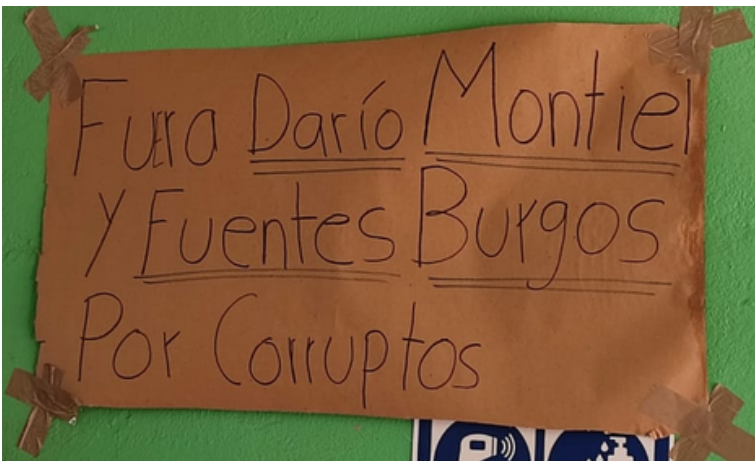 Fuera Darío Montiel
Y Fuentes Burgos
Por Corruptos